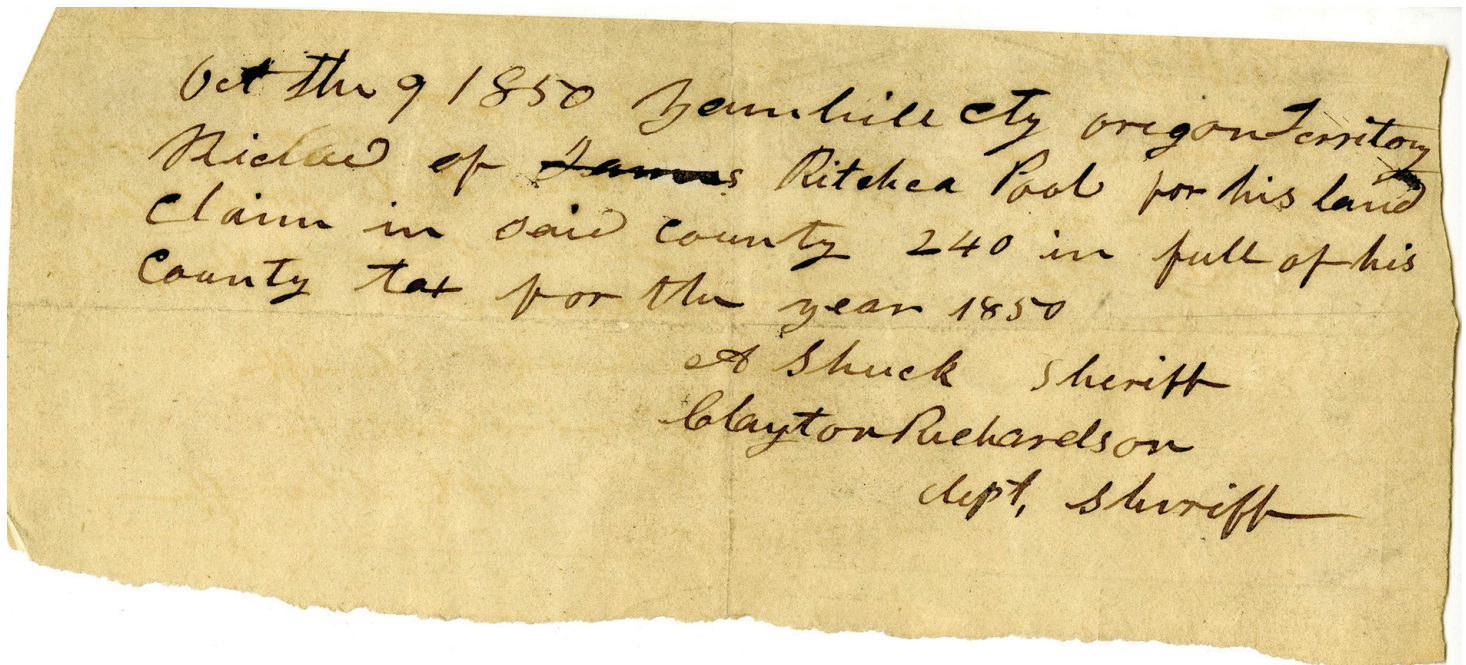 Oct the 9 1850 Yamhill cty oregon Territory
of James Ritchea Pool for his land
Claim in said county 240 in full of his
County tax for the year 1850
A Shuck Sheriff
Clayton Richardson
dept, Sheriff